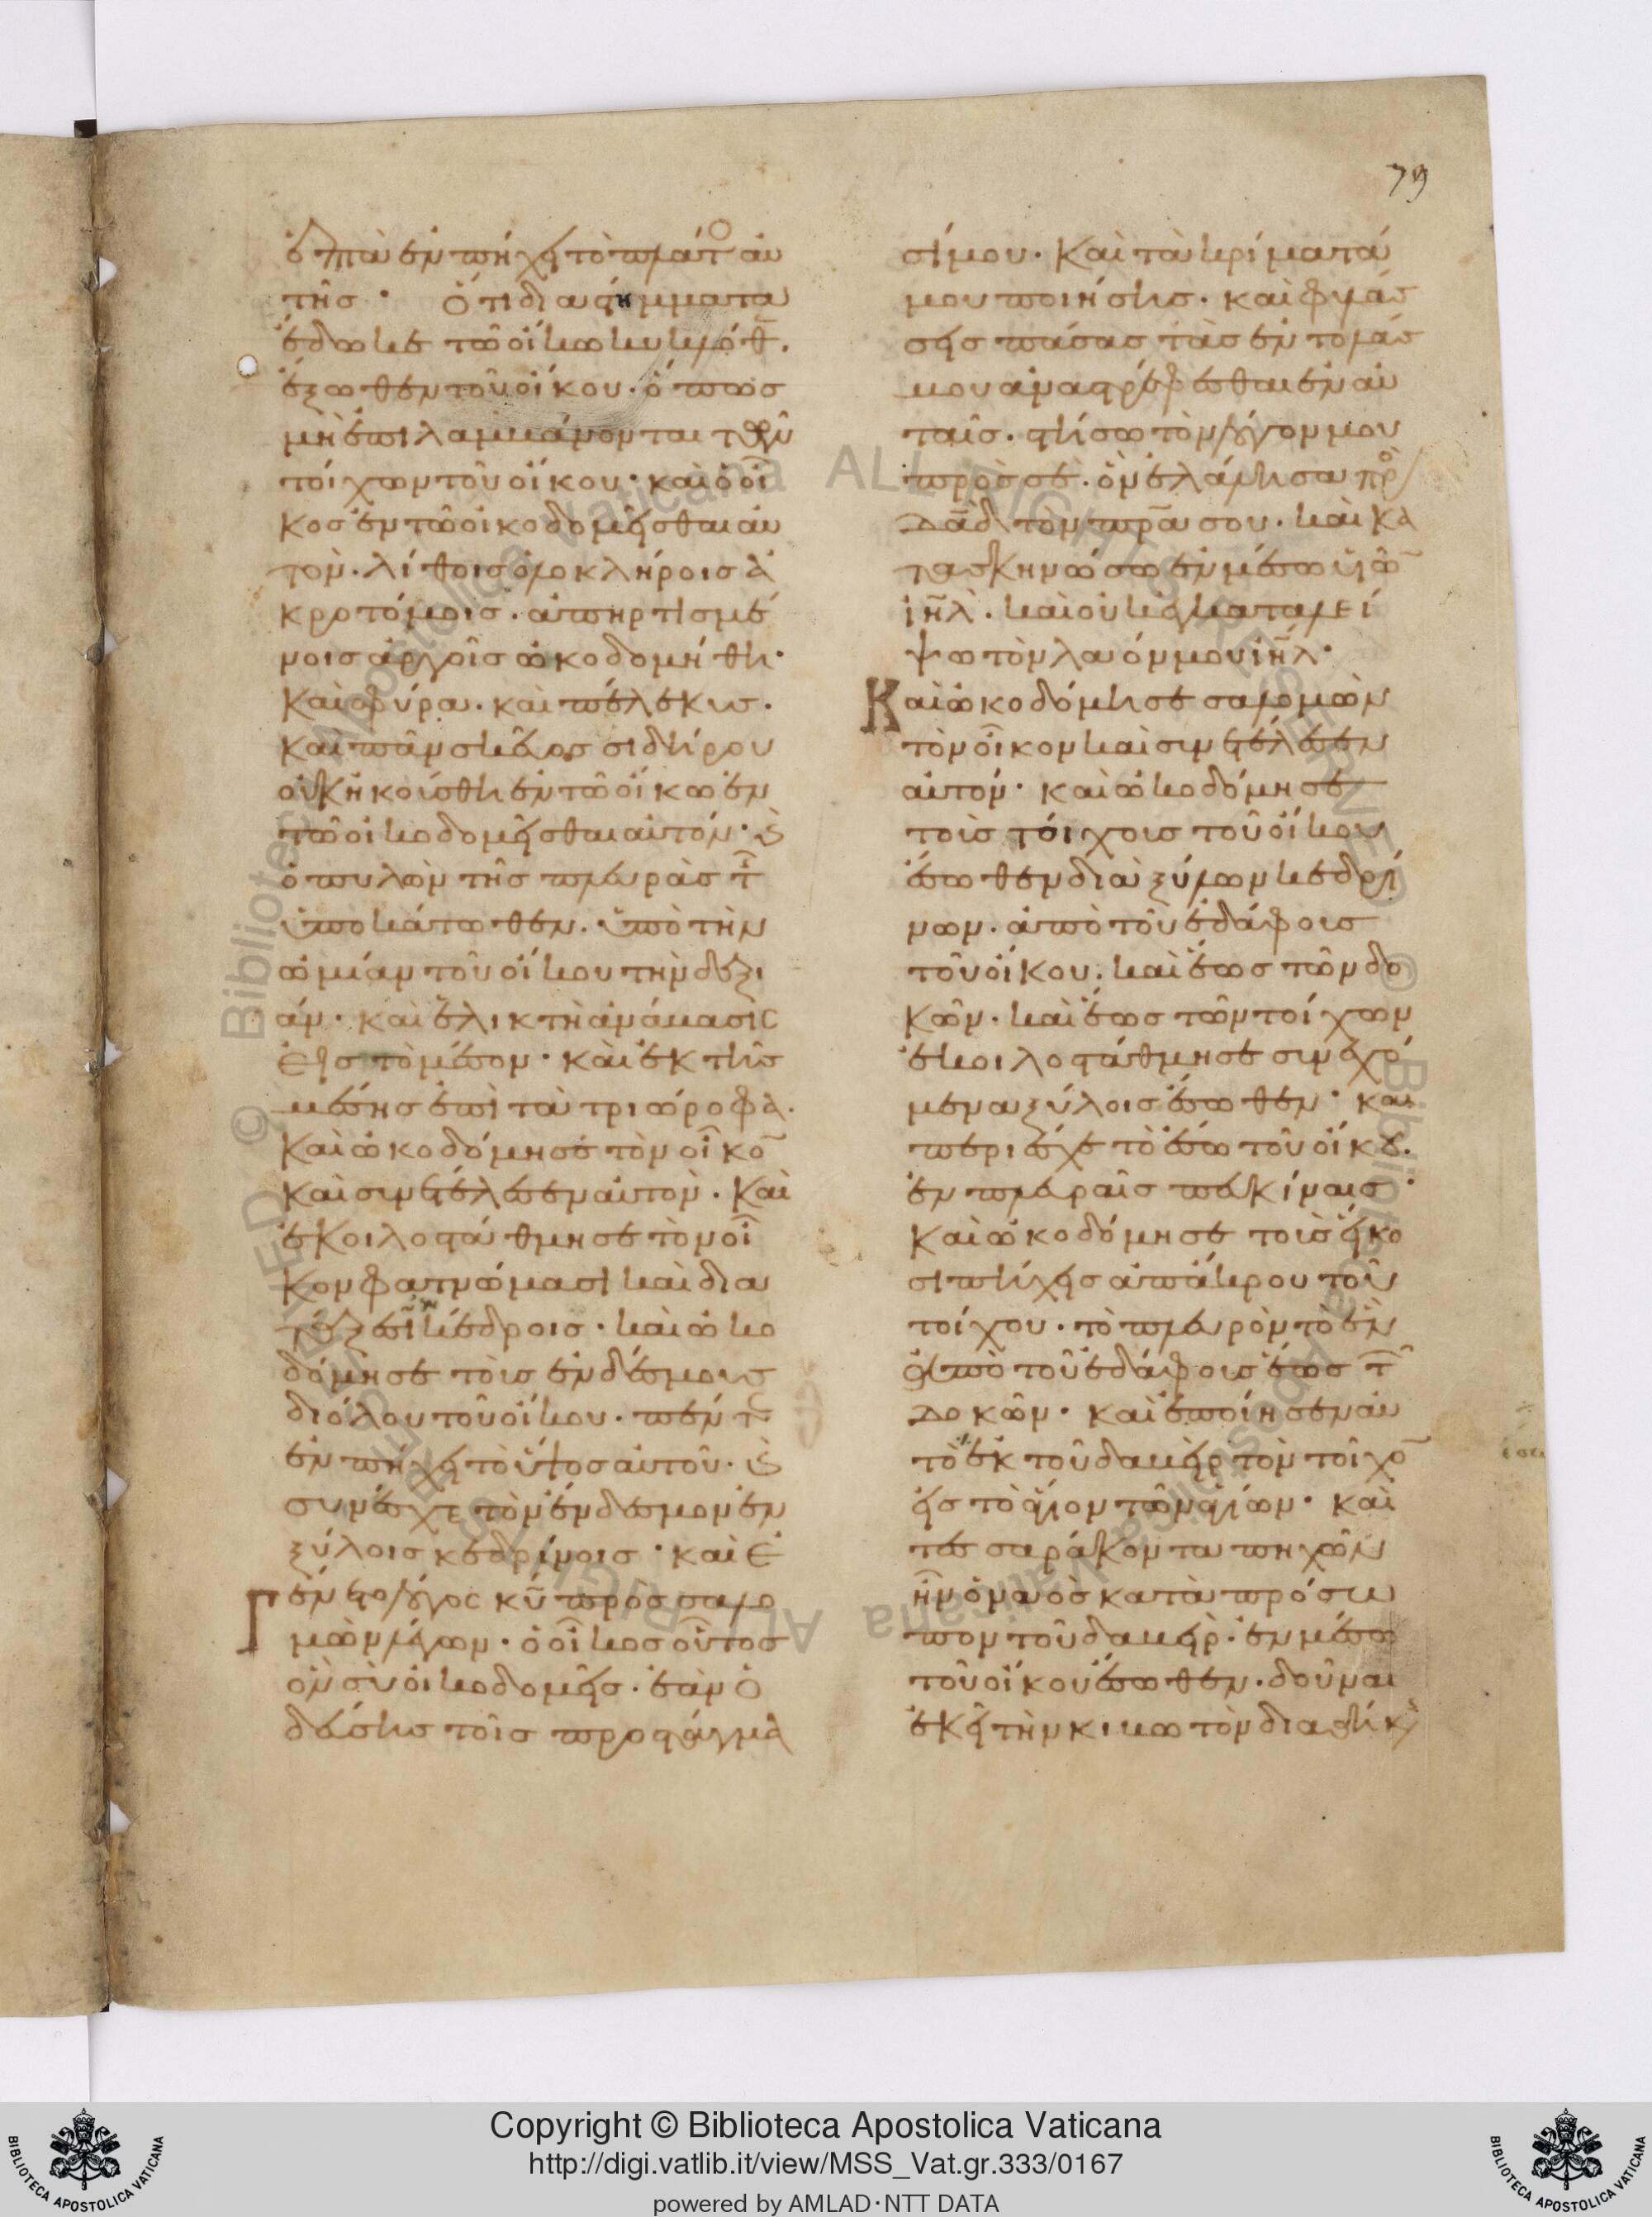 79
ἑπτὰ ἐν πήχει τὸ πλάτο αὐ
τῆσ · Ὅτι διαστημματα
ἔδωκε τῶ οἴκω κυκλόθ.
ἔξωθεν τοῦ οἴκου · ὅπωσ
μὴ ἐπιλαμβάνονται τῶν
τοίχων τοῦ οἴκου · καὶ ὁ οἶ
κοσ ἐν τῶ οἰκοδομεῖσθαι αὐ
τὸν · λίθοισ ὁλοκλήροισ ἀ
κροτόμοισ · ἀπηρτισμέ
νοισ ἀργοῖσ ὠκοδομήθη ·
Καὶ σφύρα · καὶ πέλεκυσ ·
καὶ πᾶν σκεῦοσ σιδήρου
οὐκ ἠκούσθη ἐν τῶ οἴκω ἐν
τῶ οἰκοδομεῖσθαι αὐτόν · καὶ
ὁ πυλὼν τῆσ πλευρᾶσ τ
ὑποκάτωθεν · ὑπὸ τὴν
ὠμίαν τοῦ οἴκου τὴν δεξι
άν · καὶ ἑλικτὴ ἀνάβασισ
εἰσ τὸ μέσον · καὶ ἐκ τῆσ
μέσησ ἐπὶ τὰ τριώροφα ·
Καὶ ὠκοδόμησε τὸν οἶκο
καὶ συνετέλεσεν αὐτὸν · Καὶ
ἐκοιλοστάθμησε τὸν οἶ
κον φατνώμασι καὶ δια
τάξεσιν κέδροισ · καὶ ὠκο
δόμησε τοὺσ ἐνδέσμουσ
διόλου τοῦ οἴκου · πέντε
ἐν πήχει τὸ ὕψοσ αὐτοῦ · καὶ
συνέσχε τὸν ἔνδεσμον ἐν
ξύλοισ κεδρίνοισ · καὶ ἐ
γένετο λόγοσ κῡ πρὸσ σαλο
μὼν λέγων · ὁ οἶκοσ οὗτοσ
ὃν σὺ οἰκοδομεῖσ · ἐὰν ὁ
δεύσησ τοῖσ προστάγμα
σί μου · Καὶ τὰ κρίματά
μου ποιήσησ · καὶ φυλάσ
σησ πάσασ τὰσ ἐντολάσ
μου ἀναστρέφεσθαι ἐν αὐ
ταῖσ · στήσω τὸν λόγον μου
πρὸσ σὲ · ὃν ἐλάλησα πρὸ
δᾱδ τὸν πρᾱ σου · καὶ κα
τασκηνώσω ἐν μέσω υἱῶ
ιη̄λ · καὶ οὐκ ἐγκαταλεί
ψω τὸν λαόν μου ιη̄λ ·
Καὶ ὠκοδόμησε σαλομὼν
τὸν οἶκον καὶ συνετέλεσεν
αὐτόν · καὶ ὠκοδόμησε
τοὺσ τοίχουσ τοῦ οἴκου
ἔσωθεν διὰ ξύλων κεδρί
νων · ἀπὸ τοῦ ἐδάφουσ
τοῦ οἴκου · καὶ ἕωσ τῶν δο
κῶν · καὶ ἕωσ τῶν τοίχων
ἐκοιλοστάθμησε συνεχό
μενα ξύλοισ ἔσωθεν · και
περιέσχε τὸ ἔσω τοῦ οἴκου ·
ἐν πλευραῖσ πευκίναισ ·
Καὶ ὠκοδόμησε τοὺσ εἴκο
σι πήχεισ ἀπ ἄκρου τοῦ
τοίχου · τὸ πλευρὸν τὸ ἓν
ἀπὸ τοῦ ἐδάφουσ ἕωσ τ
δοκῶν · καὶ ἐποίησεν αὐ
τὸ ἐκ τοῦ δαβεὶρ τὸν τοῖχο
εἰσ τὸ ἅγιον τῶν ἁγίων · καὶ
τεσσαράκοντα πηχῶν
ἦν ὁ ναὸσ κατὰ πρόσω
πον τοῦ δαβεὶρ · ἐν μέσω
τοῦ οἴκου ἔσωθεν · δοῦναι
ἐκεῖ τὴν κιβωτὸν διαθήκ
Copyright © Biblioteca Apostolica Vaticana
http://digi.vatlib.it/view/MSS_Vat.gr.333/0167
powered by AMLAD·NTT DATA